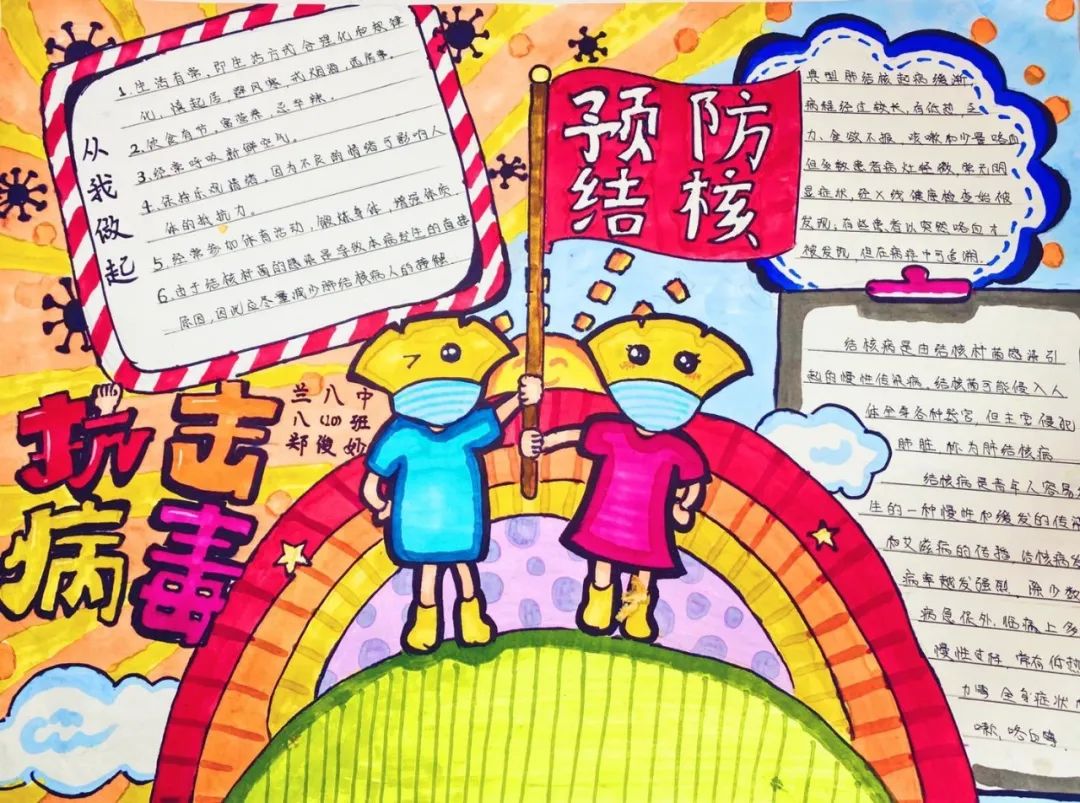 从我做起
1.生活有常,即生活方式合理化和规律
化,慎起居,避风寒,戒烟酒,远房事。
2.饮食有节,富营养,忌辛辣。
3.经常呼吸新鲜空气。
4.保持乐观情绪,因为不良的情绪可影响人
体的抵抗力。
5.经常参加体育活动,锻炼身体,增强体质
6.由于结核杆菌的感染是导致本病发生的直接
原因,因此应尽量减少肺结核病人的接触
预防
结核
典型肺结核起病缓渐
病程经过较长,有低热,乏
力、食欲不振,咳嗽和少量咯血
但多数患者病灶轻微,常无明
显症状,经X线健康检查始被
发现;有些患者以突然咯血才
被发现,但在病症中可追溯.
结核病是由结核杆菌感染引
起的慢性传染病。结核菌可能侵入人
体全身各种器官,但主要侵犯
肺脏,称为肺结核病
结核病是青年人容易
生的一种慢性和缓发的传
和艾滋病的传播,结核病发
病率越发强烈,除少数
病急促外,临床上多
慢性过程,常有低热
力等全身症状
嗽,咯血等
抗击
病毒
兰八中
八(4)班
郑俊妙